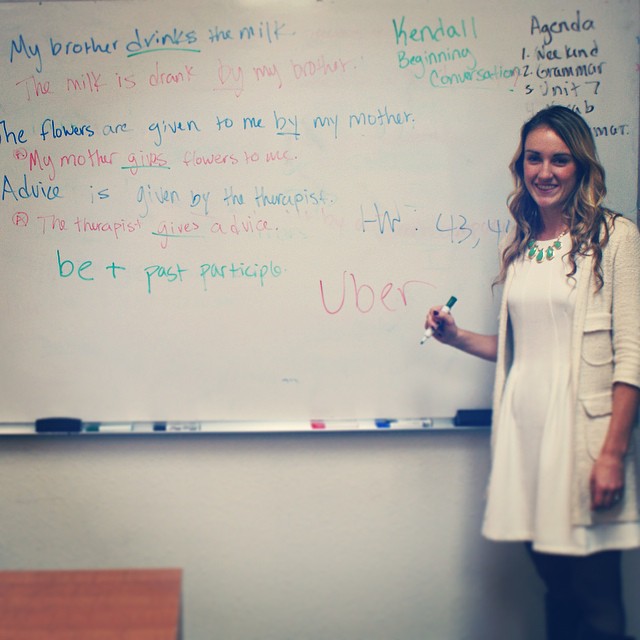 My brother drinks the milk.
The milk is drank by my brother.
The flowers are given to me by my mother.
My mother gives flowers to me.
Advice is given by the therapist.
The therapist gives advice.
be + past participle
HW: 43, 4
Uber
Kendall
Beginning
Conversation
Agenda
1. Weekend
2. Grammar
3 Unit 7